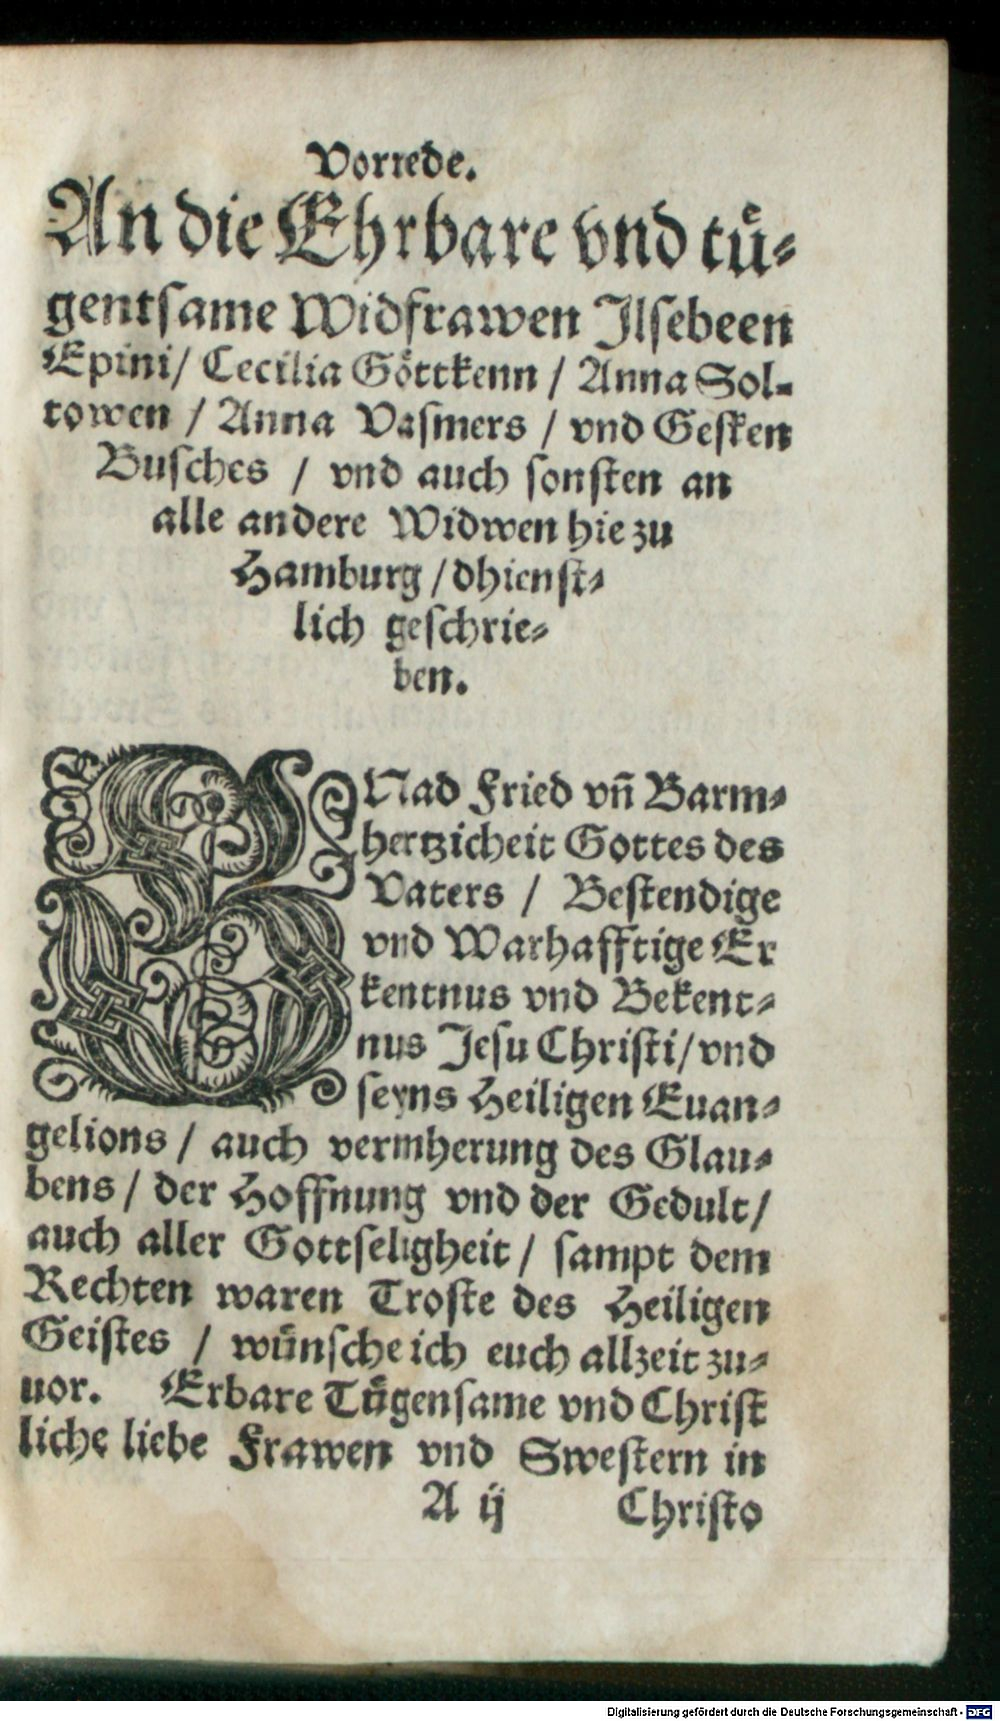 Vorrede.
An die Ehrbare vnd tuͤ⸗
gentsame Widfrawen Ilsebeen
Epini/ Cecilia Goͤttkenn / Anna Sol⸗
towen / Anna Vasmers / vnd Gesken
Busches / vnd auch sonsten an
alle andere Widwen hie zu
Hamburg /dhienst⸗
lich geschrie⸗
ben.
GNad Fried vñ Barm⸗
hertzicheit Gottes des
Vaters / Bestendige
vnd Warhafftige Er
kentnus vnd Bekent⸗
nus Jesu Christi/vnd
seyns Heiligen Euan⸗
gelions / auch vermherung des Glau⸗
bens / der Hoffnung vnd der Gedult/
auch aller Gottseligheit / sampt dem
Rechten waren Troste des Heiligen
Geistes / wuͤnsche ich euch allzeit zu⸗
uor. Erbare Tuͤgensame vnd Christ
liche liebe Frawen vnd Swestern in
A ij Christo
Digitalisierung gefördert durch die Deutsche Forschungsgemeinschaft - DFG